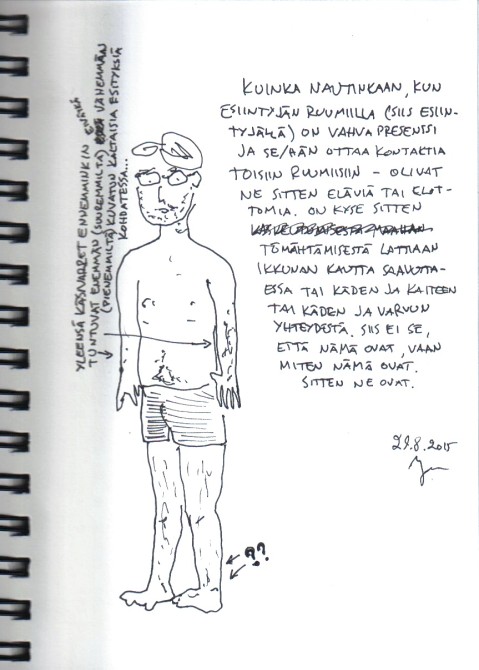 YLEENSÄ KÄSIVARRET ENNEMMINKIN ENÄKÄ
TUNTUVAT ENEMMÄN (SUUREMMILTA) VÄHEMMÄN
(PIENEMMILTÄ) KUVATUN KALTAISIA ESITYKSIÄ
KOHDATESSA...
KUINKA NAUTINKAAN, KUN
ESIINTYJÄN RUUMIILLA (SIIS ESIIN-
TYJÄLLÄ) ON VAHVA PRESENSSI
JA SE/HÄN OTTAA KONTAKTIA
TOISIIN RUUMIISIIN - OLIVAT
NE SITTEN ELÄVIÄ TAI ELOT-
TOMIA. ON KYSE SITTEN
TÖMÄHTÄMISESTÄ LATTIAAN
IKKUNAN KAUTTA SAAVUTTA-
ESSA TAI KÄDEN JA KAITEEN
TAI KÄDEN JA VARVUN
YHTEYDESTÄ. SIIS EI SE,
ETTÄ NÄMÄ OVAT, VAAN
MITEN NÄMÄ OVAT.
SITTEN NE OVAT.
29.8.2015
??